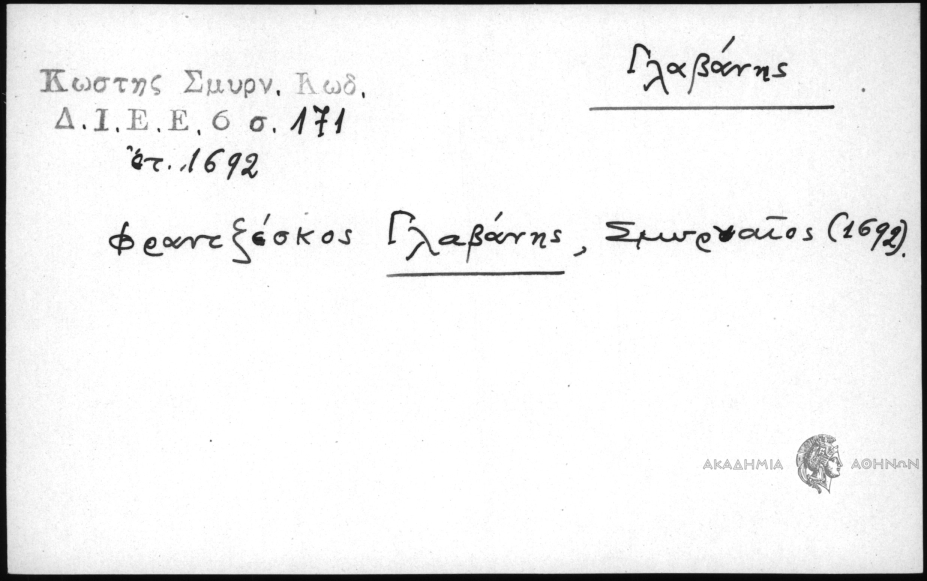 Γλαβάνης
Κωστης Σμυρν. Κωδ.
Δ.Ι.Ε.Ε. 6 σ. 171
ἔτ. 1692
Φραντζέσκος Γλαβάνης, Σμυρναῖος (1692).
ΑΚΑΔΗΜΙΑ ΑΘΗΝΩΝ